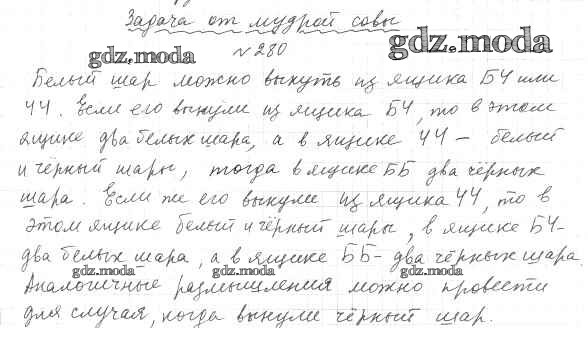 Задача от мудрой совы
gdz.moda
№280
gdz.moda
Белый шар можно вынуть из ящика БЧ или
ЧЧ. Если его вынули из ящика БЧ, то в этом
ящике два белых шара, а в ящике ЧЧ – белый
и чёрный шары, тогда в ящике ББ два чёрных
шара. Если же его вынули из ящика ЧЧ, то в
этом ящике белый и чёрный шары, в ящике БЧ-
два белых шара, а в ящике ББ- два чёрных шара.
gdz.moda gdz.moda gdz.moda
Аналогичные размышления можно провести
для случая, когда вынули чёрный шар.